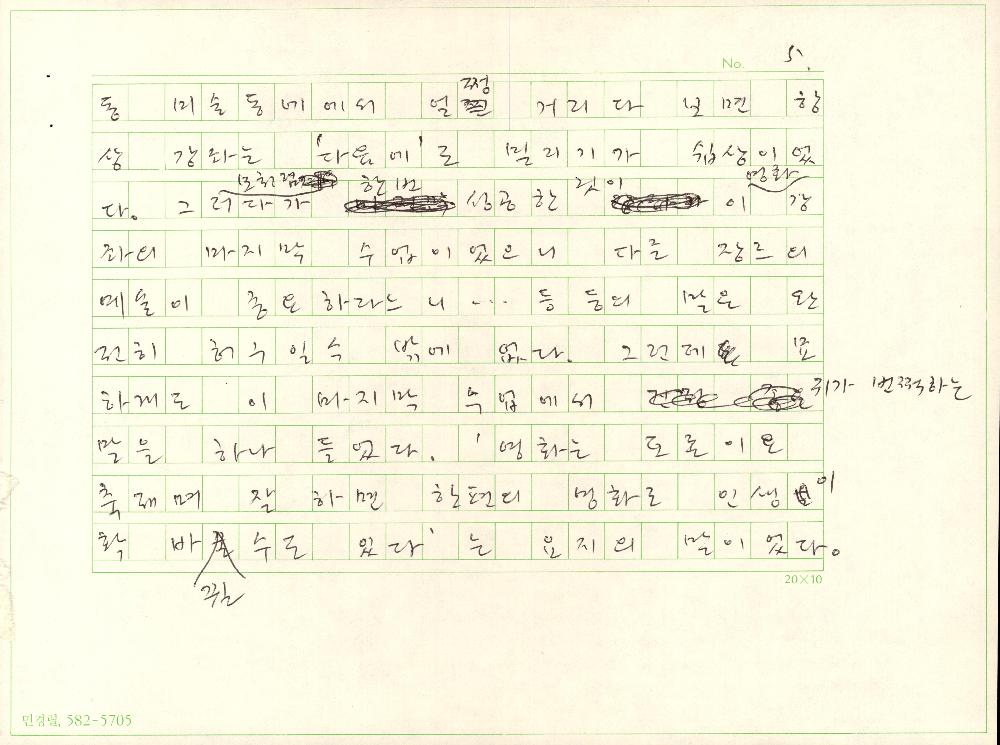 No. 5.
동 미술동네에서 얼쩡거리다 보면 항
상 강좌는 '다음에'로 밀리기가 쉽상이었
다. 그러다가 모처럼 한번 성공한 것이 이 영화 강
좌의 마지막 수업이었으니 다른 장르의
예술이 중요하라느니... 등등의 말은 완
전히 허수일 수 밖에 없다. 그런데 묘
하게도 이 마지막 수업에서 귀가 번쩍하는
말을 하나 들었다. '영화는
축제며 잘 하면 한편의 영화로 인생이
확 바뀔 수도 있다'는 요지의 말이었다.
20×10
민경렬, 582-5705